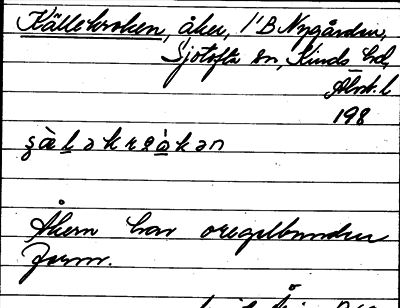 Källekroken, åker, 1'B Nygården,
Sjötofta sn, Kinds hd,
Älvsb. l
198
Åkern har oregelbunden
form.